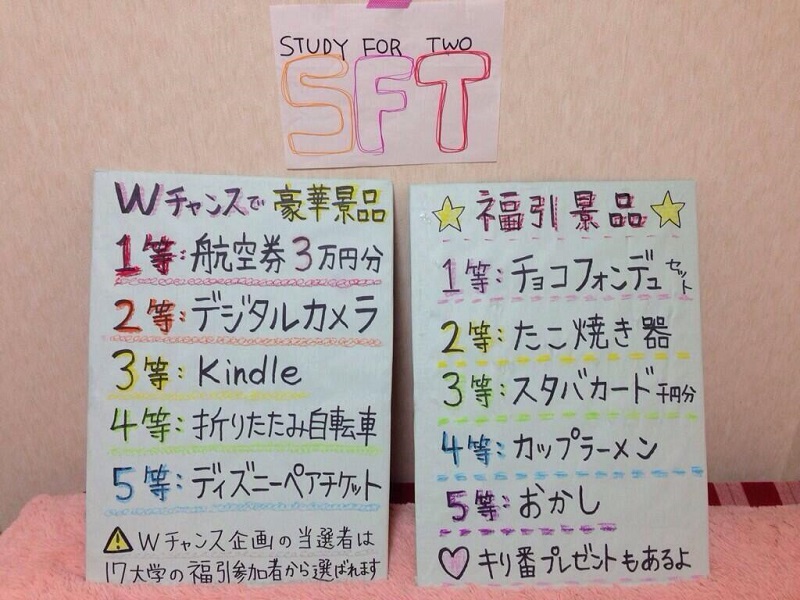 STUDY FOR TWO
SFT
Wチャンスで豪華景品
1等:航空券3万円分
2等:デジタルカメラ
3等:Kindle
4等:折りたたみ自転車
5等:ディズニーペアチケット
⚠Wチャンス企画の当選者は
17大学の福引参加者から選ばれます
☆福引景品☆
1等:チョコフォンデュセット
2等:たこ焼き器
3等:スタバカード千円分
4等:カップラーメン
5等:おかし
♡キリ番プレゼントもあるよ